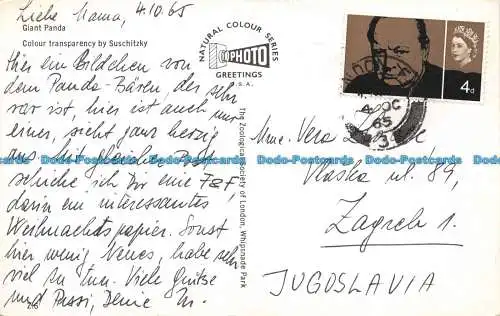 Liebe Mama, 4.10.65
Giant Panda
Colour transparency by Suschitzky
Hier ein Bildchen von
dem Panda-Bären, der sehr
rar ist, hier ist auch nur
einer, sieht ganz herzig
aus. Mit gleicher Post
schicke ich Dir eine F&F,
darin ein interessantes
Weihnachtspapier. Sonst
hier wenig Neues, habe sehr
viel zu tun. Viele Grüsse
und Bussi, Deine M.
NATURAL COLOUR SERIES
PHOTO
GREETINGS
The Zoological Society of London, Whipsnade Park
4d
OC
65
Mme. Vera
Vlaška ul. 89,
Zagreb 1.
JUGOSLAVIA
Dodo-Postcards Dodo-Postcards Dodo-Postcards Dodo-Postcards Dodo-Postcards